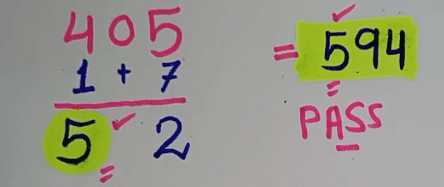 405
1 + 7
5 2
= 594
PASS